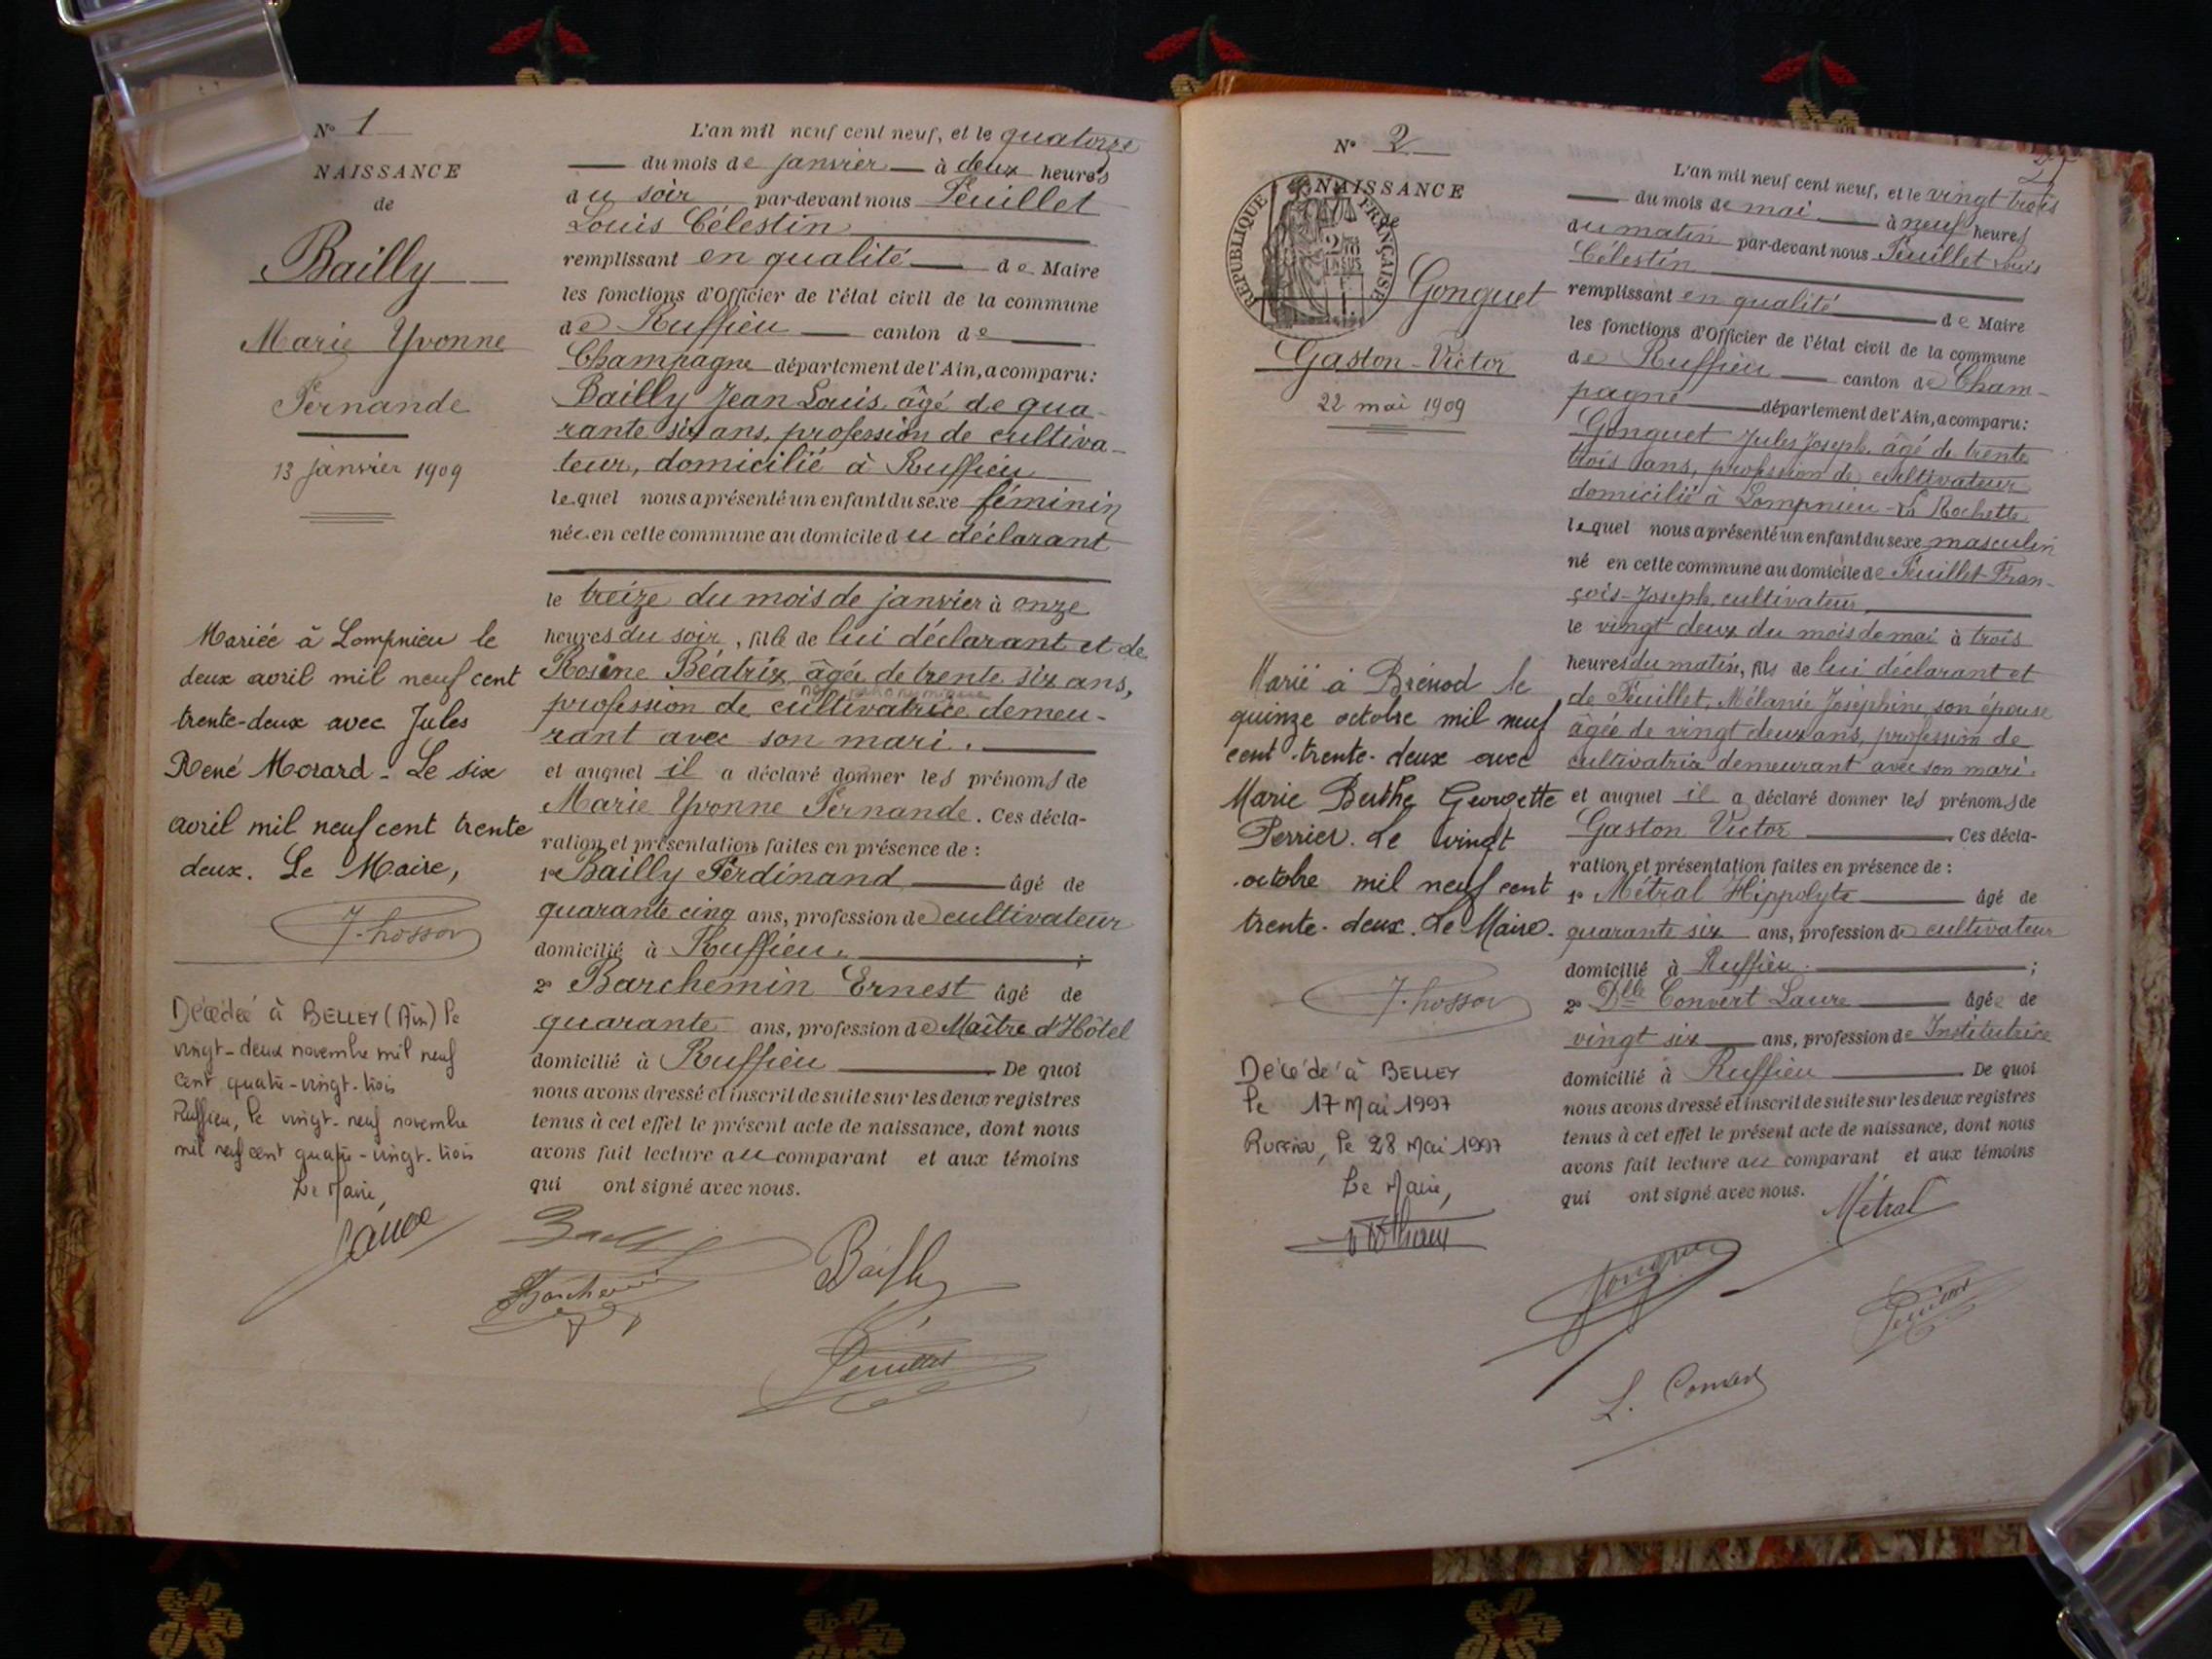 N° 1
NAISSANCE
de
Bailly
Marie Yvonne
Fernande
13 janvier 1909
Mariée à Lompnieu le
deux avril mil neuf cent
trente-deux avec Jules
René Morard - Le six
avril mil neuf cent trente
deux. Le Maire,
Décédée à BELLEY (Ain) le
vingt-deux novembre mil neuf
cent quatre-vingt-trois
Ruffieu, le vingt-neuf novembre
mil neuf cent quatre-vingt-trois
Le Maire,
L'an mil neuf cent neuf, et le quatorze
du mois de janvier à deux heures
du soir par-devant nous Feuillet
Louis Célestin
remplissant en qualité de Maire
les fonctions d'Officier de l'état civil de la commune
de Ruffieu canton de
Champagne département de l'Ain, a comparu :
Bailly Jean Louis, âgé de qua-
rante six ans, profession de cultiva-
teur, domicilié à Ruffieu
lequel nous a présenté un enfant du sexe féminin
née en cette commune au domicile du déclarant
le treize du mois de janvier à onze
heures du soir, fille de lui déclarant et de
Rosine Béatrix, âgée de trente six ans,
profession de cultivatrice demeu-
rant avec son mari.
et auquel il a déclaré donner les prénoms de
Marie Yvonne Fernande. Ces décla-
ration et présentation faites en présence de :
1° Bailly Ferdinand âgé de
quarante cinq ans, profession de cultivateur
domicilié à Ruffieu. ;
2° Barchemin Ernest âgé de
quarante ans, profession de Maître d'Hôtel
domicilié à Ruffieu De quoi
nous avons dressé et inscrit de suite sur les deux registres
tenus à cet effet le présent acte de naissance, dont nous
avons fait lecture au comparant et aux témoins
qui ont signé avec nous.
Bailly
Barchemin
Bailly
Feuillet
N° 2
NAISSANCE
de
REPUBLIQUE FRANÇAISE
Gonguet
Gaston-Victor
22 mai 1909
Marié à Brénod le
quinze octobre mil neuf
cent-trente-deux avec
Marie Berthe Georgette
Perrier. Le vingt
octobre mil neuf cent
trente-deux. Le Maire.
Décédé à BELLEY
le 17 Mai 1997
Ruffieu, le 28 Mai 1997
Le Maire,
L'an mil neuf cent neuf, et le vingt trois
du mois de mai à neuf heures
du matin par-devant nous Feuillet Louis
Célestin
remplissant en qualité de Maire
les fonctions d'Officier de l'état civil de la commune
de Ruffieu canton de Cham-
pagne département de l'Ain, a comparu :
Gonguet Jules Joseph, âgé de trente
trois ans, profession de cultivateur
domicilié à Lompnieu-La Rochette
lequel nous a présenté un enfant du sexe masculin
né en cette commune au domicile de Feuillet Fran-
çois-Joseph, cultivateur
le vingt deux du mois de mai à trois
heures du matin, fils de lui déclarant et
de Feuillet, Mélanie Joséphine, son épouse
âgée de vingt deux ans, profession de
cultivatrix demeurant avec son mari.
et auquel il a déclaré donner les prénoms de
Gaston Victor Ces décla-
ration et présentation faites en présence de :
1° Métral Hippolyte âgé de
quarante six ans, profession de cultivateur
domicilié à Ruffieu. ;
2° Dlle Convert Laure âgée de
vingt six ans, profession de Institutrice
domicilié à Ruffieu De quoi
nous avons dressé et inscrit de suite sur les deux registres
tenus à cet effet le présent acte de naissance, dont nous
avons fait lecture au comparant et aux témoins
qui ont signé avec nous.
Métral
Gonguet
Feuillet
L. Convert